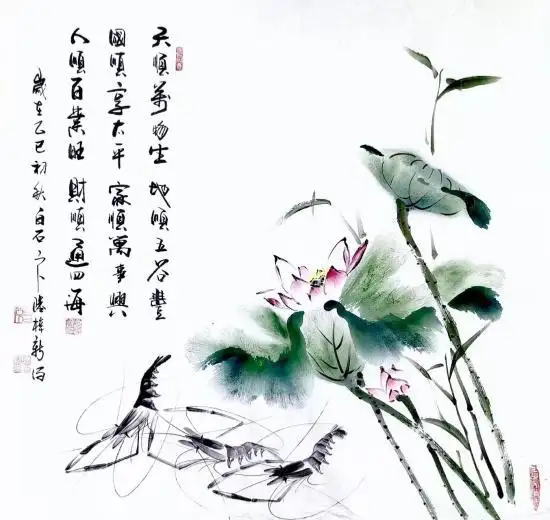 天順萬物生 地順五谷豐
國順享太平 家順萬事興
人順百業旺 財順通四海
歲在乙巳初秋白石門下